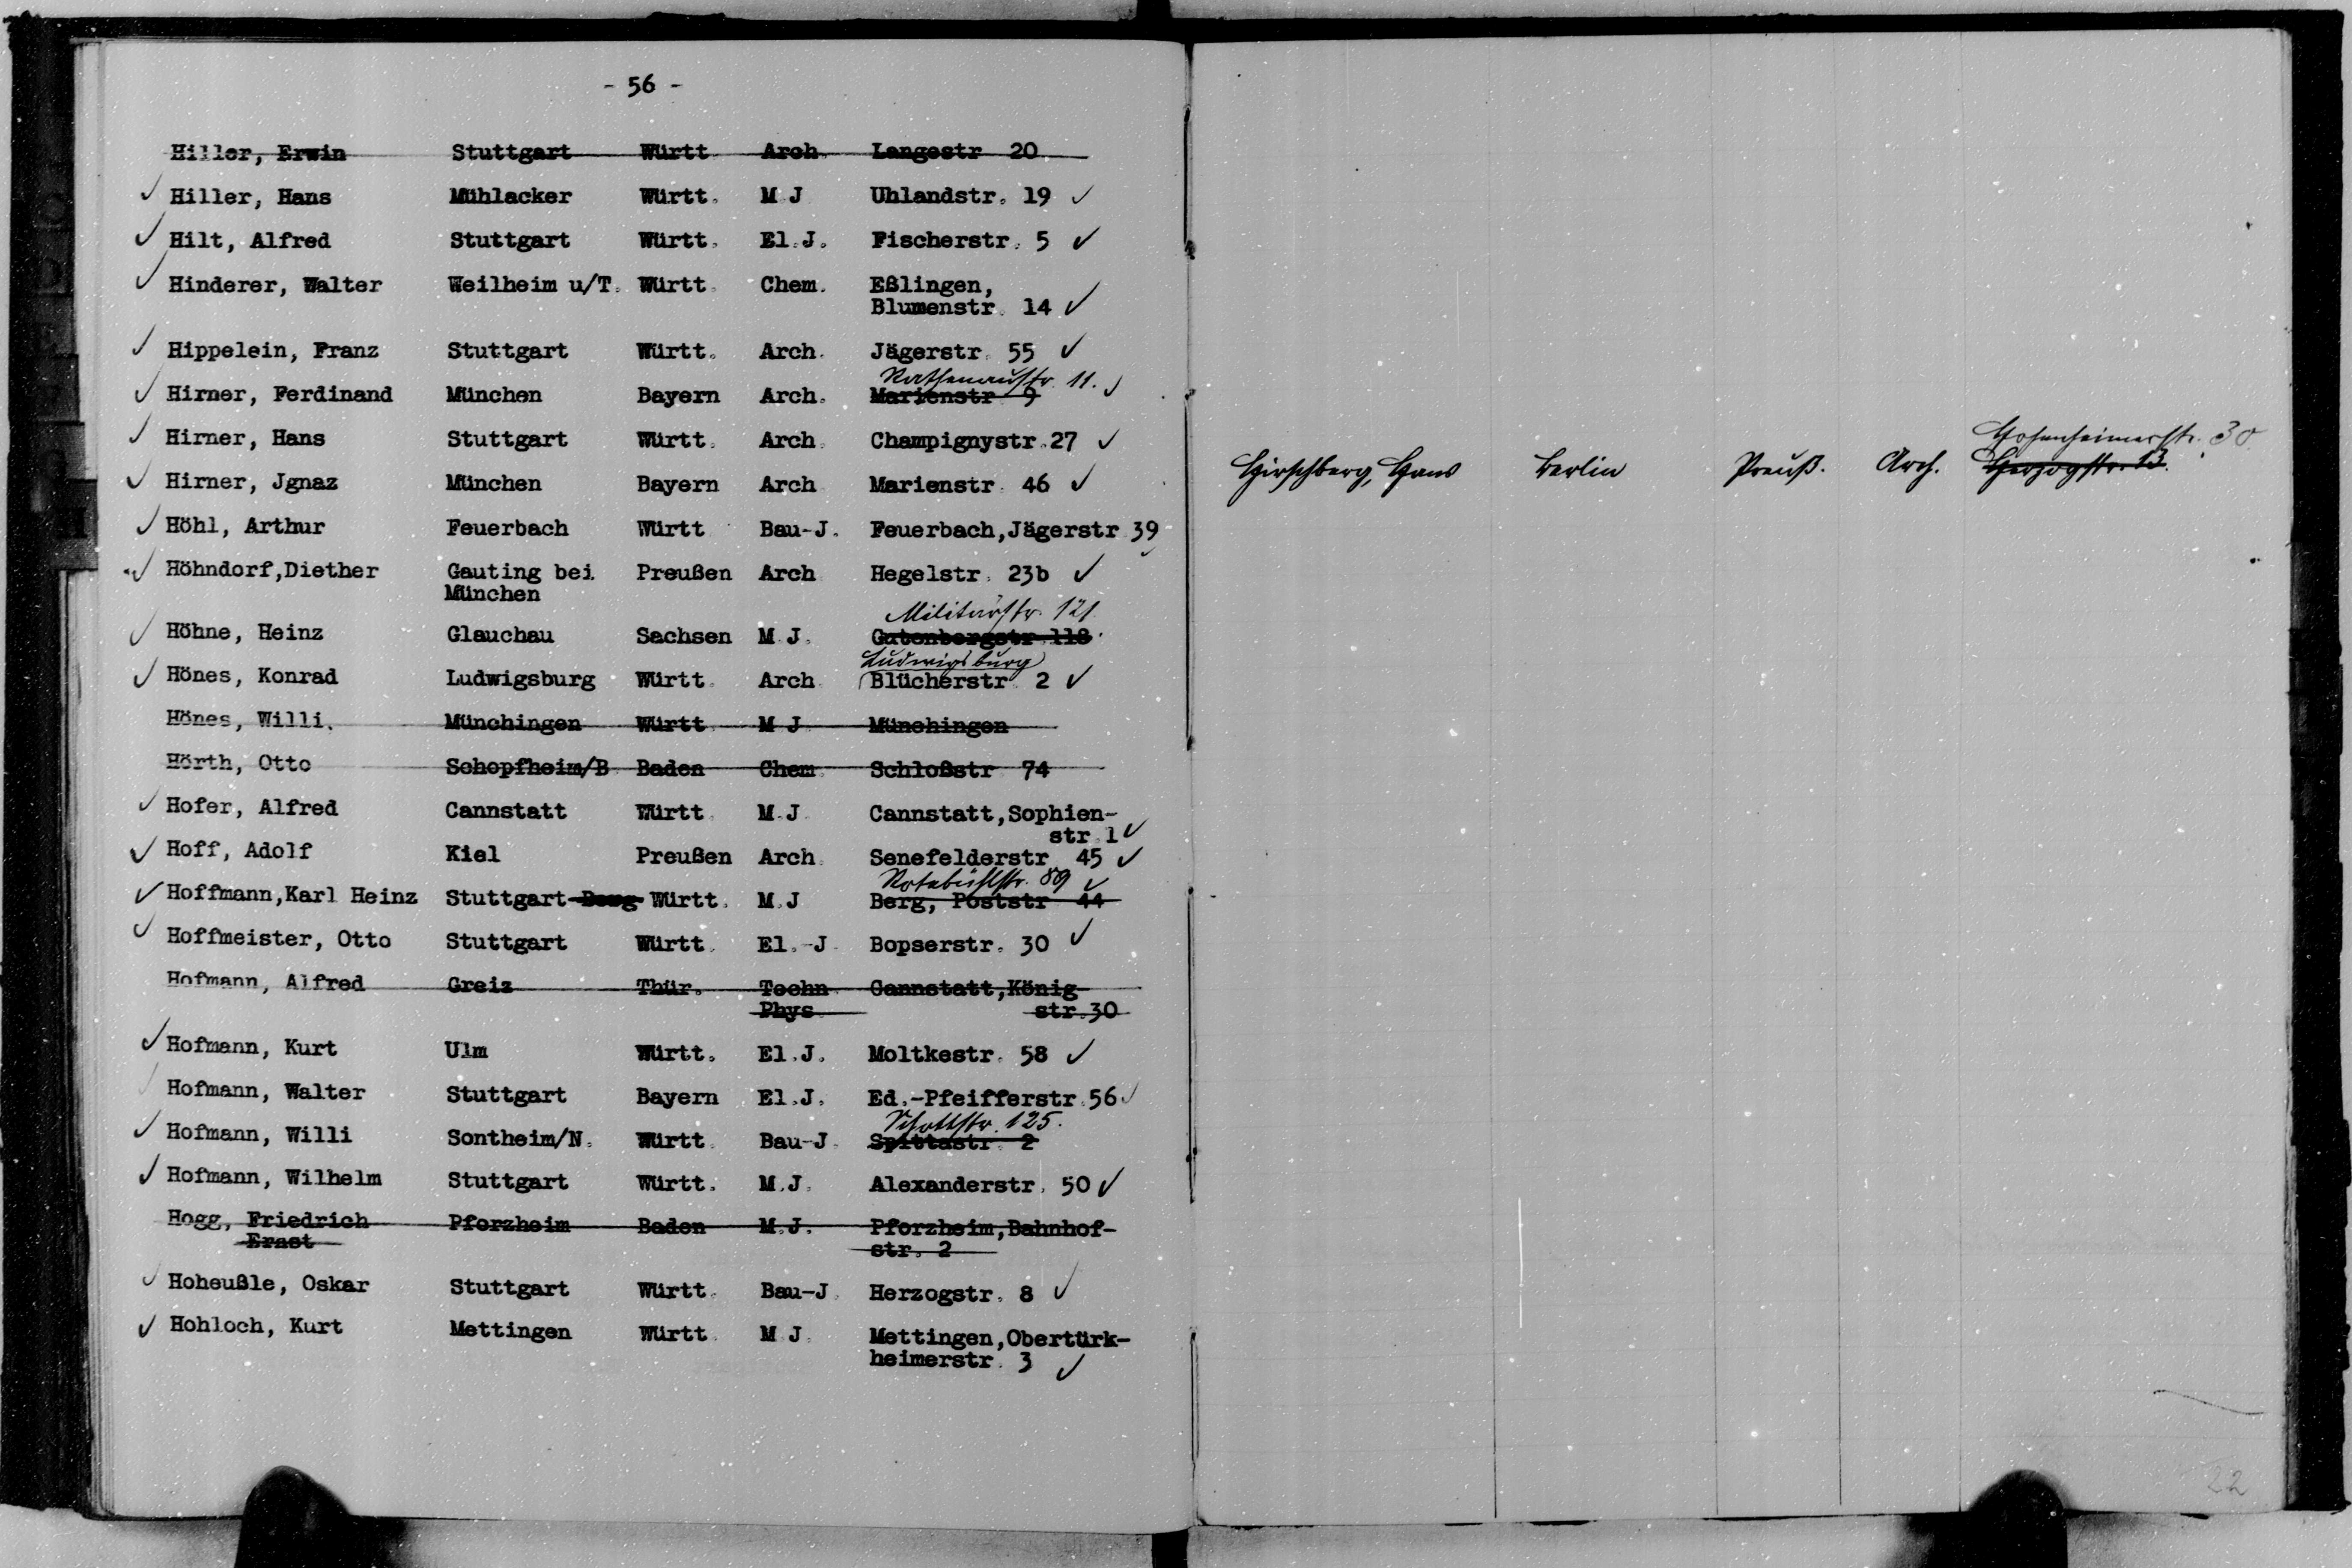 - 56 -
Hiller, Erwin Stuttgart Württ. Arch. Langestr. 20
Hiller, Hans Mühlacker Württ. M.J. Uhlandstr. 19
Hilt, Alfred Stuttgart Württ. El.J. Fischerstr. 5
Hinderer, Walter Weilheim u/T. Württ. Chem. Eßlingen,
Blumenstr. 14
Hippelein, Franz Stuttgart Württ. Arch. Jägerstr. 55
Rathenaustr. 11.
Hirner, Ferdinand München Bayern Arch. Marienstr. 9
Hirner, Hans Stuttgart Württ. Arch. Champignystr.27
Hirner, Jgnaz München Bayern Arch. Marienstr. 46
Höhl, Arthur Feuerbach Württ. Bau-J. Feuerbach,Jägerstr.39
Höhndorf,Diether Gauting bei Preußen Arch. Hegelstr. 23b
München
Militärstr. 121
Höhne, Heinz Glauchau Sachsen M.J. Gutenbergstr.118
Ludwigsburg
Hönes, Konrad Ludwigsburg Württ. Arch. Blücherstr. 2
Hönes, Willi. Münchingen Württ. M.J. Münchingen
Hörth, Otto Schopfheim/B. Baden Chem. Schloßstr. 74
Hofer, Alfred Cannstatt Württ. M.J. Cannstatt,Sophien-
str.1
Hoff, Adolf Kiel Preußen Arch. Senefelderstr. 45
Rotebühlstr. 89
Hoffmann,Karl Heinz Stuttgart-Berg Württ. M.J. Berg, Poststr. 44
Hoffmeister, Otto Stuttgart Württ. El.-J. Bopserstr. 30
Hofmann, Alfred Greiz Thür. Techn. Cannstatt,König-
Phys. str.30
Hofmann, Kurt Ulm Württ. El.J. Moltkestr. 58
Hofmann, Walter Stuttgart Bayern El.J. Ed.-Pfeifferstr.56
Schottstr. 125.
Hofmann, Willi Sontheim/N. Württ. Bau-J. Spittastr. 2
Hofmann, Wilhelm Stuttgart Württ. M.J. Alexanderstr. 50
Hogg, Friedrich Pforzheim Baden M.J. Pforzheim,Bahnhof-
Ernst str. 2
Hoheußle, Oskar Stuttgart Württ. Bau-J. Herzogstr. 8
Hohloch, Kurt Mettingen Württ. M.J. Mettingen,Obertürk-
heimerstr. 3
Hohenheimerstr. 30
Hirschberg, Hans Berlin Preuß. Arch. Herzogstr. 13.
22